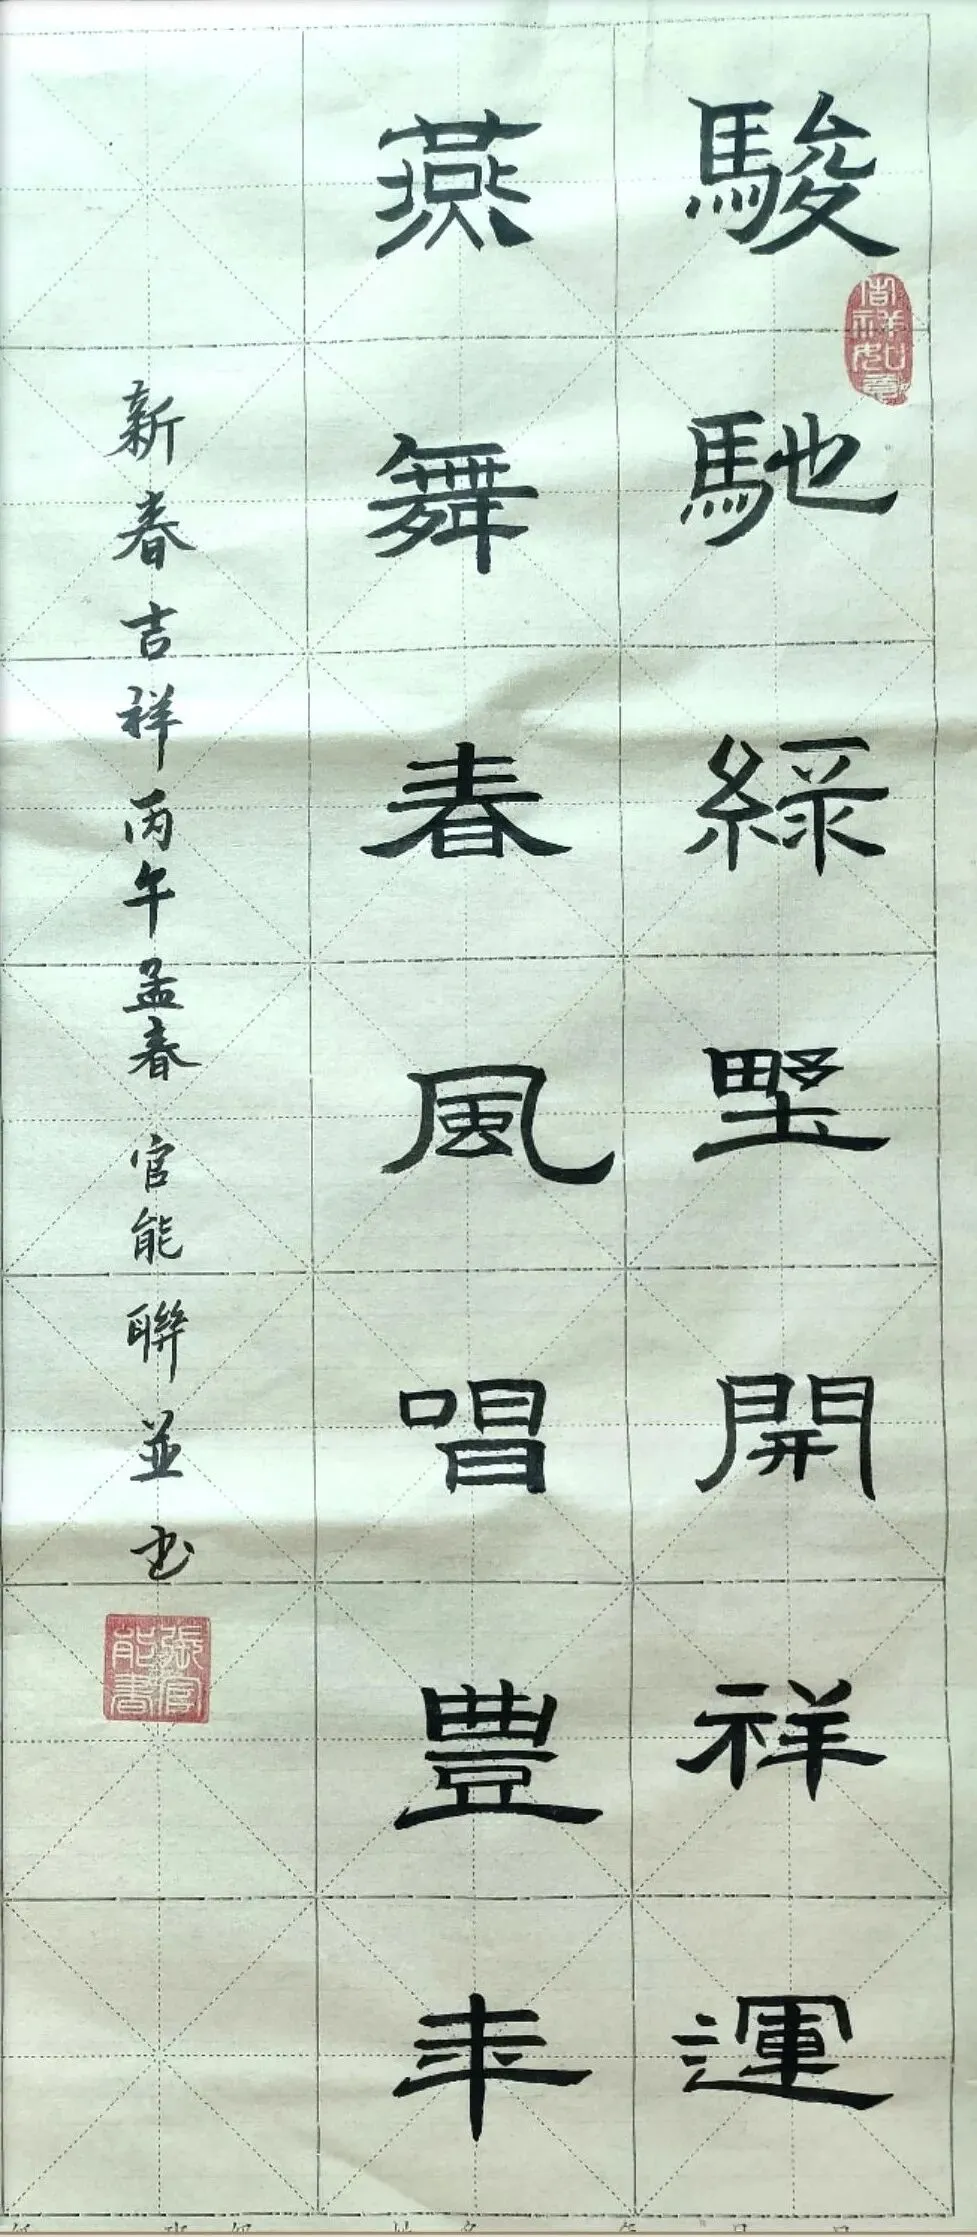 駿馳綠墅開祥運
燕舞春風唱豐年
新春吉祥丙午孟春官能聯並书
吉祥如意
張官能書